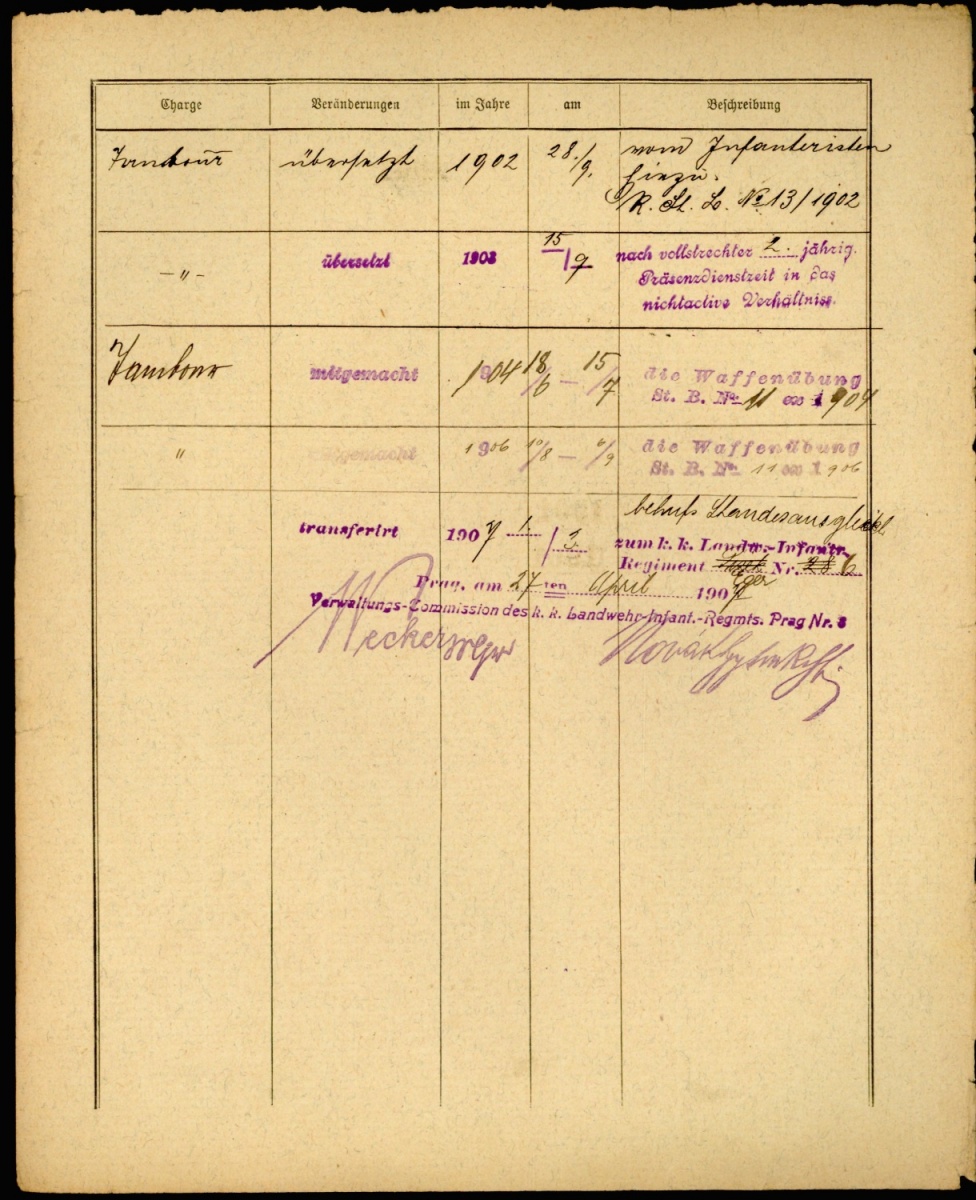 Charge Veränderungen im Jahre am Beschreibung
Tambour übersetzt 1902 28./9. vom Infanteristen
hiezu.
R. St. B. No 13/1902
-"- übersetzt 1903 15/9 nach vollstreckter 2. jährig.
Präsenzdienstzeit in das
nichtactive Verhältniss.
Tambour mitgemacht 1904 18/6 — 15/7 die Waffenübung
St. B. No 11 ex 1904
" mitgemacht 1906 10/8 — 6/9 die Waffenübung
St. B. No 11 ex 1906
behufs Standesausgleich
transferirt 1907 1. / 3. zum k. k. Landw.-Infantr.
Regiment Eger Nr. 6
Prag, am 27ten April 1907
Verwaltungs-Commission des k. k. Landwehr-Infant.-Regmts. Prag Nr. 8
Novák